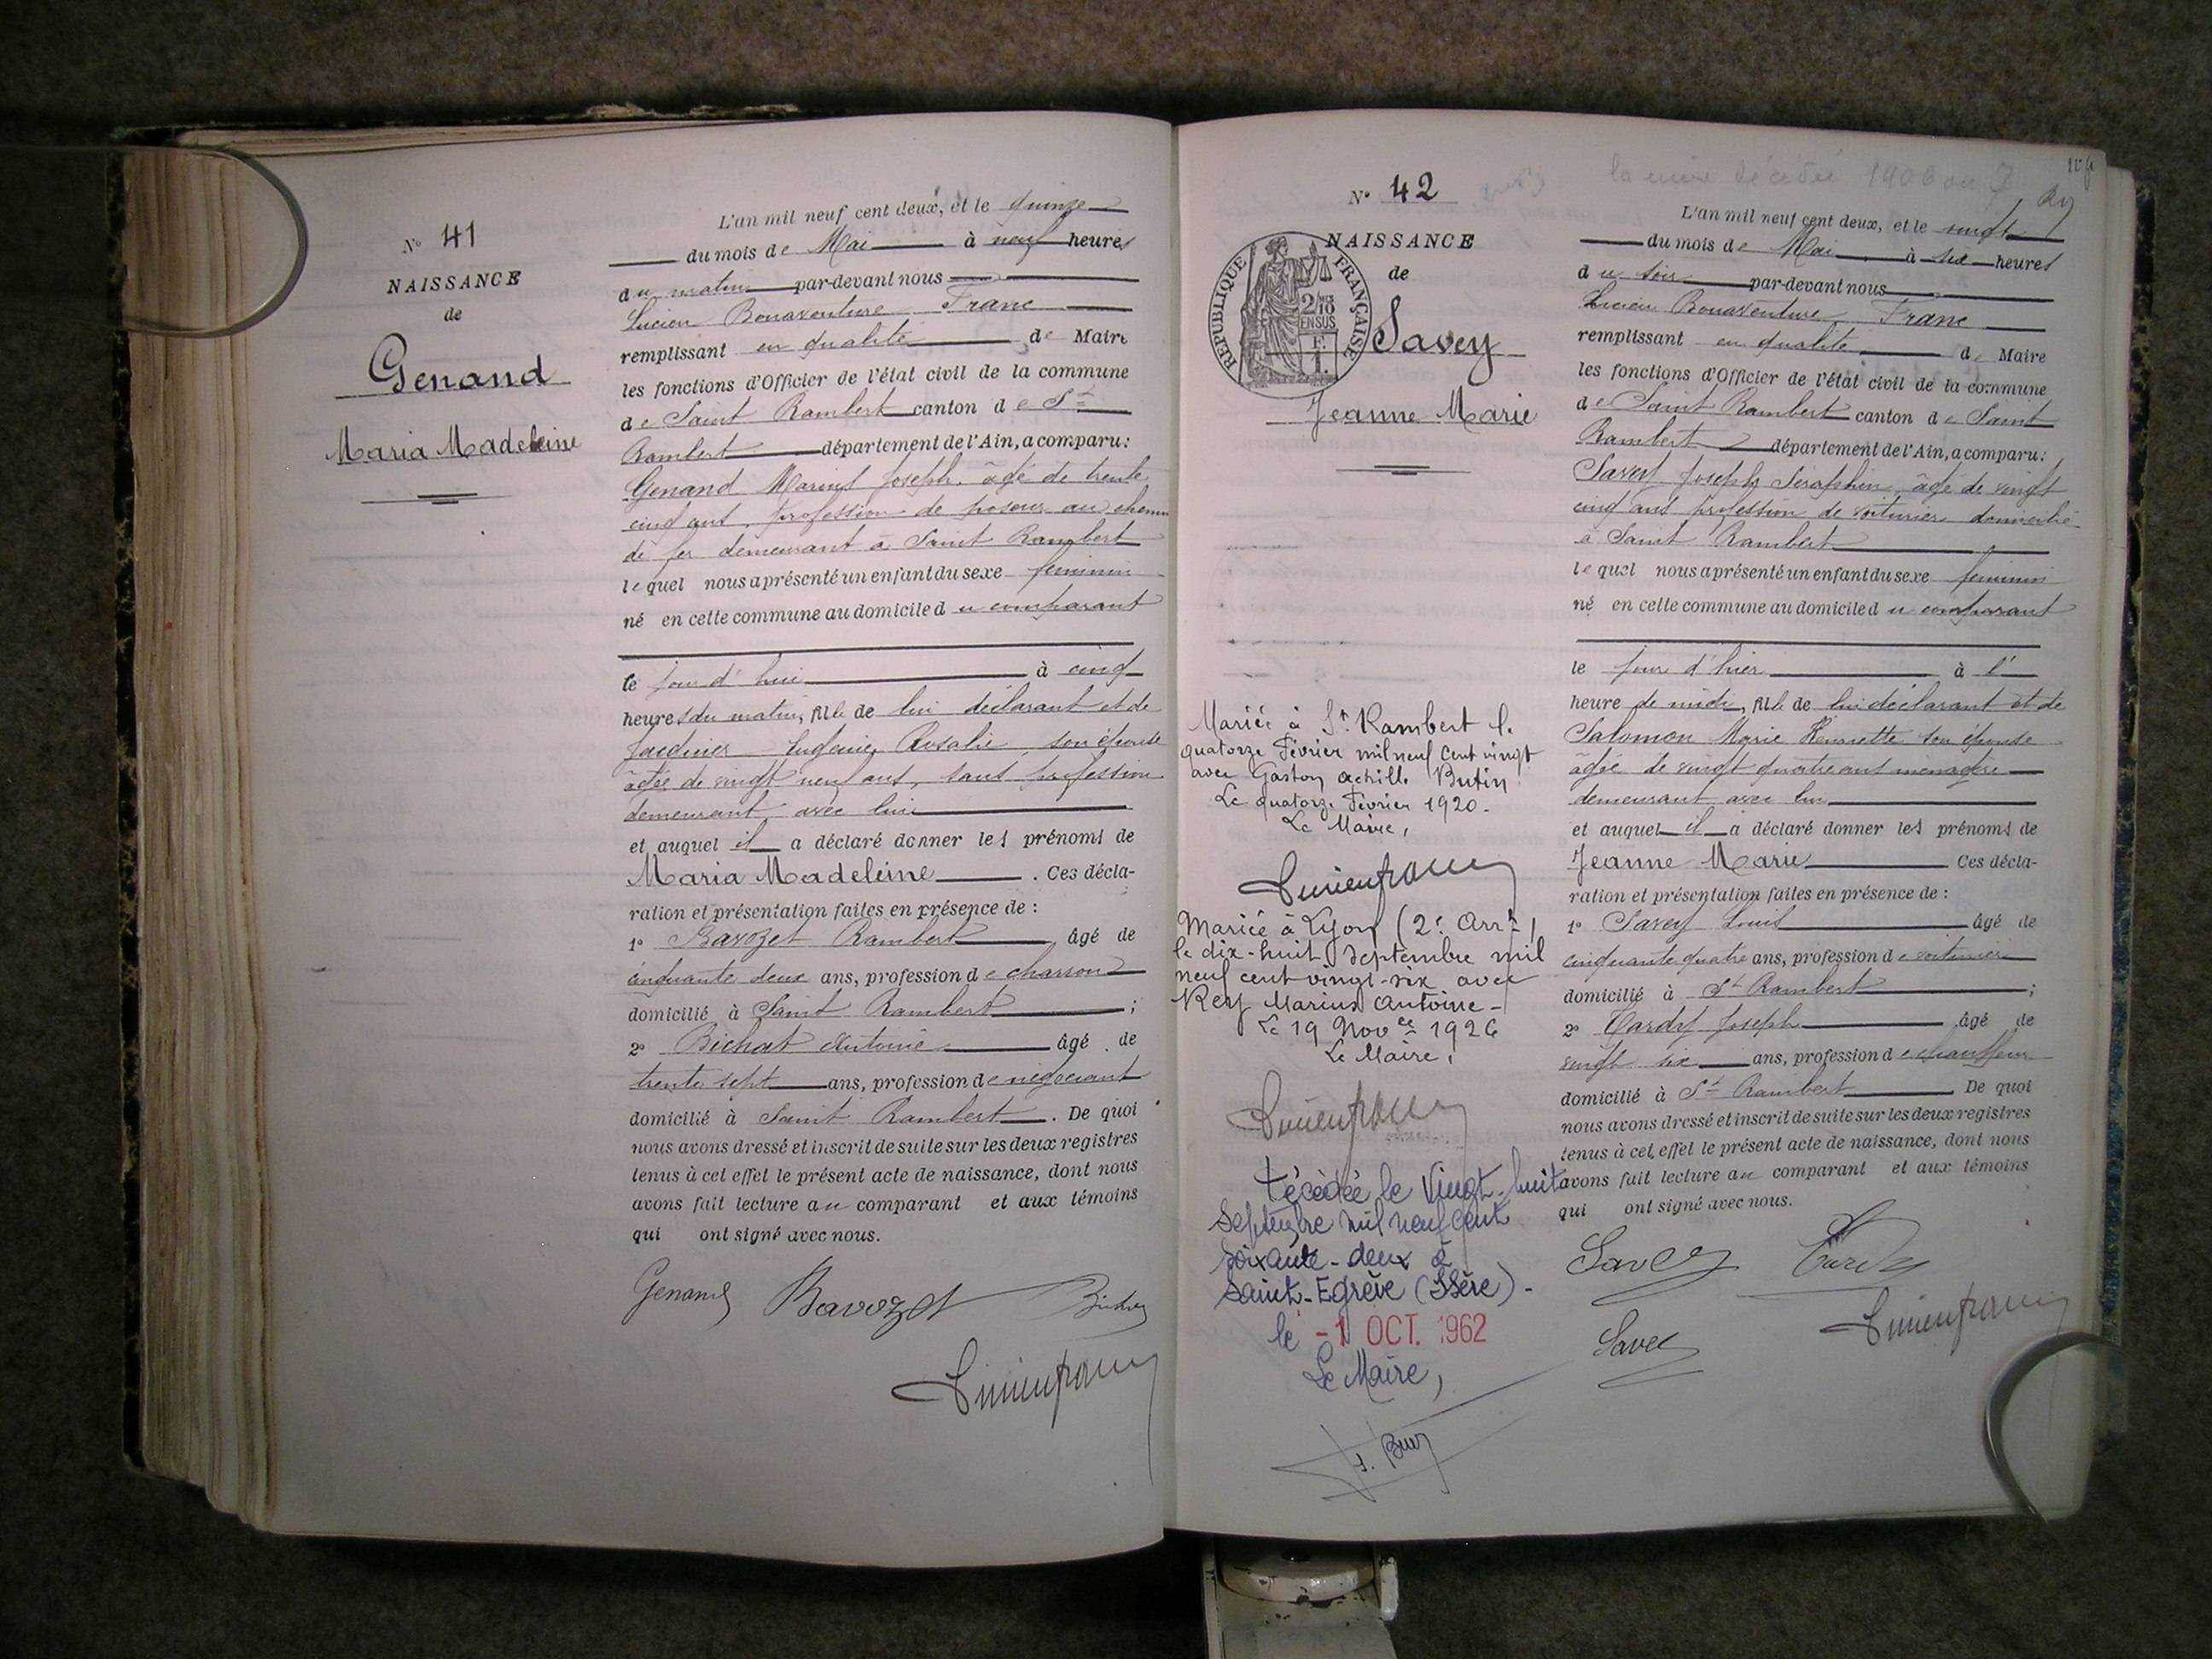 N° 41
NAISSANCE
de
Genand
Maria Madeleine
L'an mil neuf cent deux, et le quinze
du mois de Mai à neuf heures
du matin par-devant nous
Lucien Bonaventure Franc
remplissant en qualité de Maire
les fonctions d'Officier de l'état civil de la commune
de Saint Rambert canton de St
Rambert département de l'Ain, a comparu:
Genand Marius Joseph, âgé de trente
cinq ans, profession de poseur au chemin
de fer demeurant à Saint Rambert
lequel nous a présenté un enfant du sexe féminin
né en cette commune au domicile du comparant
le jour d'hui à cinq
heures du matin, fille de lui déclarant et de
Eugénie Rosalie son épouse
âgée de vingt neuf ans, sans profession
demeurant avec lui
et auquel il a déclaré donner les prénoms de
Maria Madeleine. Ces décla-
ration et présentation faites en présence de :
1° Ravozet Rambert âgé de
cinquante deux ans, profession de charron
domicilié à Saint Rambert ;
2° Bichat Antoine âgé de
trente sept ans, profession de négociant
domicilié à Saint Rambert. De quoi
nous avons dressé et inscrit de suite sur les deux registres
tenus à cet effet le présent acte de naissance, dont nous
avons fait lecture au comparant et aux témoins
qui ont signé avec nous.
Genand Ravozet
Lucien franc
la mère décédée 1906 ou 7
N° 42
NAISSANCE
de
RÉPUBLIQUE FRANÇAISE
2/10
EN SUS
Savey
Jeanne Marie
Mariée à St Rambert le
quatorze Février mil neuf cent vingt
avec Gaston Achille Butin
Le quatorze Février 1920.
Le Maire,
Lucien franc
Mariée à Lyon (2e Arrt)
le dix-huit Septembre mil
neuf cent vingt-six avec
Rey Marius Antoine -
Le 19 Novbre 1926
Le Maire,
Lucien franc
Décédée le Vingt-huit
Septembre mil neuf cent
soixante-deux à
Saint-Egrève (Isère) -
le -1 OCT. 1962
Le Maire,
L'an mil neuf cent deux, et le vingt
du mois de Mai à six heures
du soir par-devant nous
Lucien Bonaventure Franc
remplissant en qualité de Maire
les fonctions d'Officier de l'état civil de la commune
de Saint Rambert canton de Saint
Rambert département de l'Ain, a comparu:
Savey Joseph Séraphin, âgé de vingt
cinq ans profession de voiturier domicilié
à Saint Rambert
lequel nous a présenté un enfant du sexe féminin
né en cette commune au domicile du comparant
le jour d'hier à l'
heure de midi, fille de lui déclarant et de
Salomon Marie Henriette son épouse
âgée de vingt quatre ans ménagère
demeurant avec lui
et auquel il a déclaré donner les prénoms de
Jeanne Marie Ces décla-
ration et présentation faites en présence de :
1° Savey Louis âgé de
cinquante quatre ans, profession de voiturier
domicilié à St Rambert ;
2° Tardy Joseph âgé de
vingt six ans, profession de chauffeur
domicilié à St Rambert De quoi
nous avons dressé et inscrit de suite sur les deux registres
tenus à cet effet le présent acte de naissance, dont nous
avons fait lecture au comparant et aux témoins
qui ont signé avec nous.
Savey Tardy
Savey Lucien franc